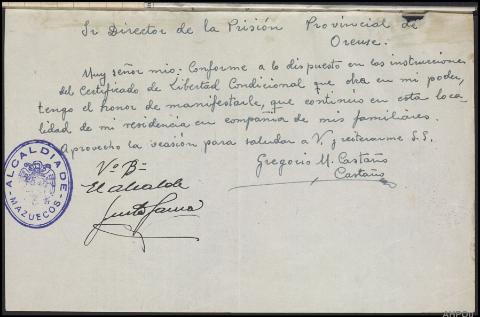 Sr Director de la Prisión Provincial de
Orense.
Muy señor mio: Conforme a lo dispuesto en las instrucciones
del Certificado de Libertad Condicional que obra en mi poder,
tengo el honor de manifestarle, que continúo en esta loca-
lidad de mi residencia en compañia de mis familiares.
Aprovecho la ocasión para saludar a V. y reiterarme S.S.
Gregorio M. Castaño
Castaño
Vº Bº
El alcalde
Justo
ALCALDIA DE
MAZUECOS